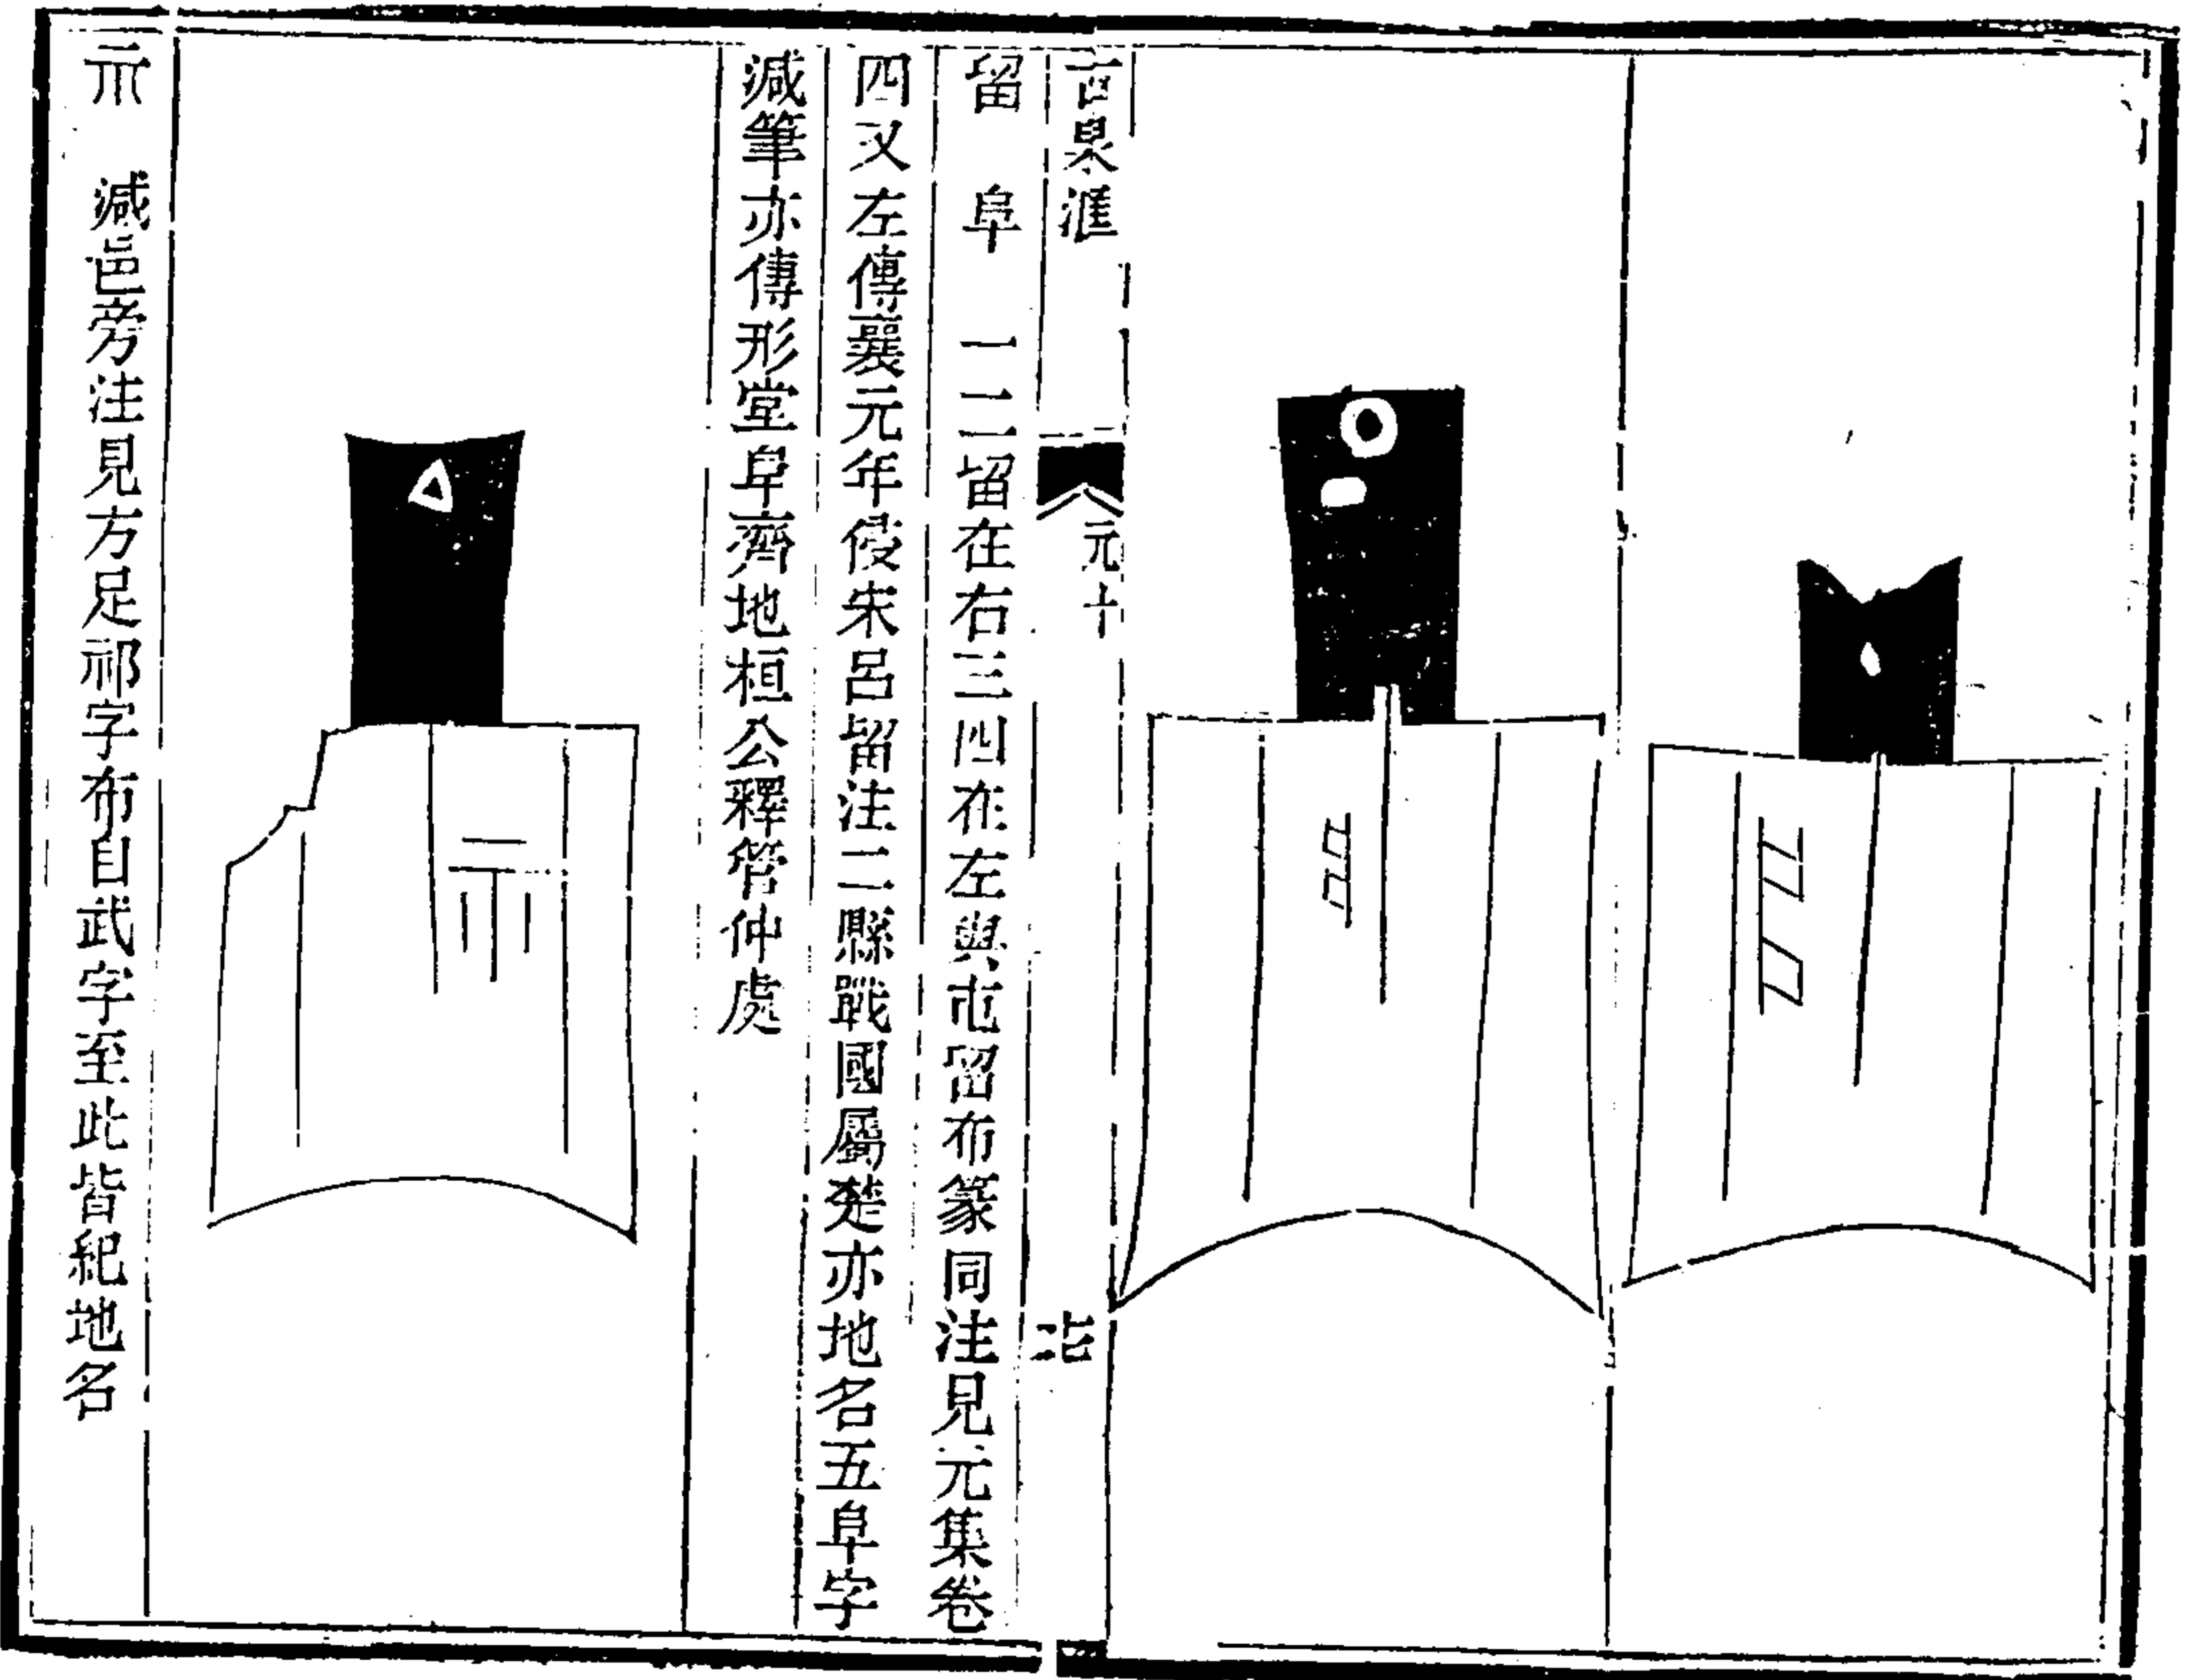 古泉滙
元十
留　阜　一二留在右三四在左與屯留布篆同注見元集卷
四又左傳襄元年侵宋呂留注二縣戰國屬楚亦地名五阜字
減筆亦傳形堂阜齊地桓公釋管仲處
示　減邑旁注見方足祁字布自武字至此皆紀地名